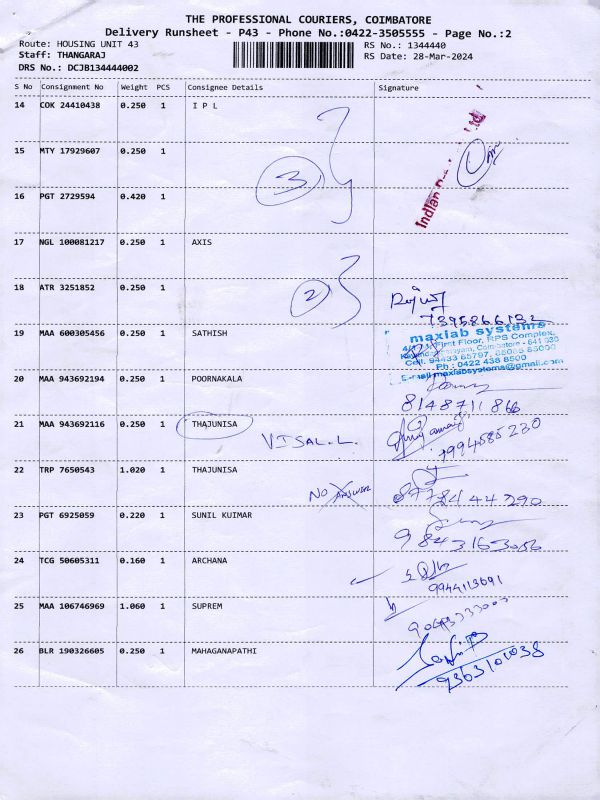 THE PROFESSIONAL COURIERS, COIMBATORE
Delivery Runsheet - P43 - Phone No.:0422-3505555 - Page No.:2
Route: HOUSING UNIT 43 RS No.: 1344440
Staff: THANGARAJ RS Date: 28-Mar-2024
DRS No.: DCJB134444002
S No Consignment No Weight PCS Consignee Details Signature
14 COK 24410438 0.250 1 I P L
15 MTY 17929607 0.250 1
3
1
Indian
16 PGT 2729594 0.420 1
17 NGL 100081217 0.250 1 AXIS
18 ATR 3251852 0.250 1
2
7395866132
19 MAA 600305456 0.250 1 SATHISH
maxlab systems
First Floor, RPS Complex,
Coimbatore - 641 030
Cell: 94433 65797, 88085 85000
Ph : 0422 438 8500
E-mail:maxlabsystems@gmail.com
20 MAA 943692194 0.250 1 POORNAKALA
8148711866
21 MAA 943692116 0.250 1 THAJUNISA
VISAL.L.
7994585230
22 TRP 7650543 1.020 1 THAJUNISA
NO ANSWER
8778444290
23 PGT 6925059 0.220 1 SUNIL KUIMAR
9843163056
24 TCG 50605311 0.160 1 ARCHANA
9944113691
25 MAA 106746969 1.060 1 SUPREM
26 BLR 190326605 0.250 1 MAHAGANAPATHI
9363101038